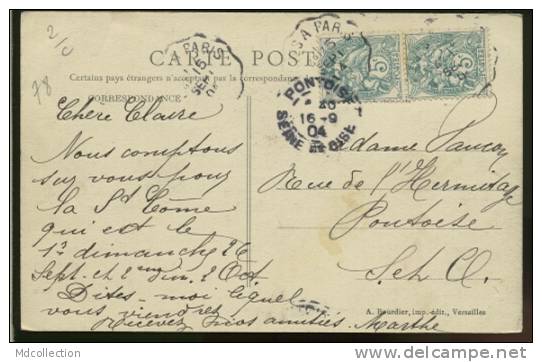 2/c
78
CARTE POSTALE
Certains pays étrangers n'acceptent pas la correspondance
CORRESPONDANCE
A PARIS
15
SEPT
04
S A PARIS
15
SEPT
04
PONTOISE
16-9
04
SEINE ET OISE
Chère Claire
Nous comptons
sur vous pour
la St Côme
qui est le
1r dimanche 26
Sept. et 2me dim. 2 Oct
Dites-moi lequel
vous viendrez
Recevez nos amitiés. Marthe
Madame
Rue de l'Hermitage
Pontoise
S. et O.
A. Bourdier, imp.-édit., Versailles
Mdcollection
http://www.delcampe.net